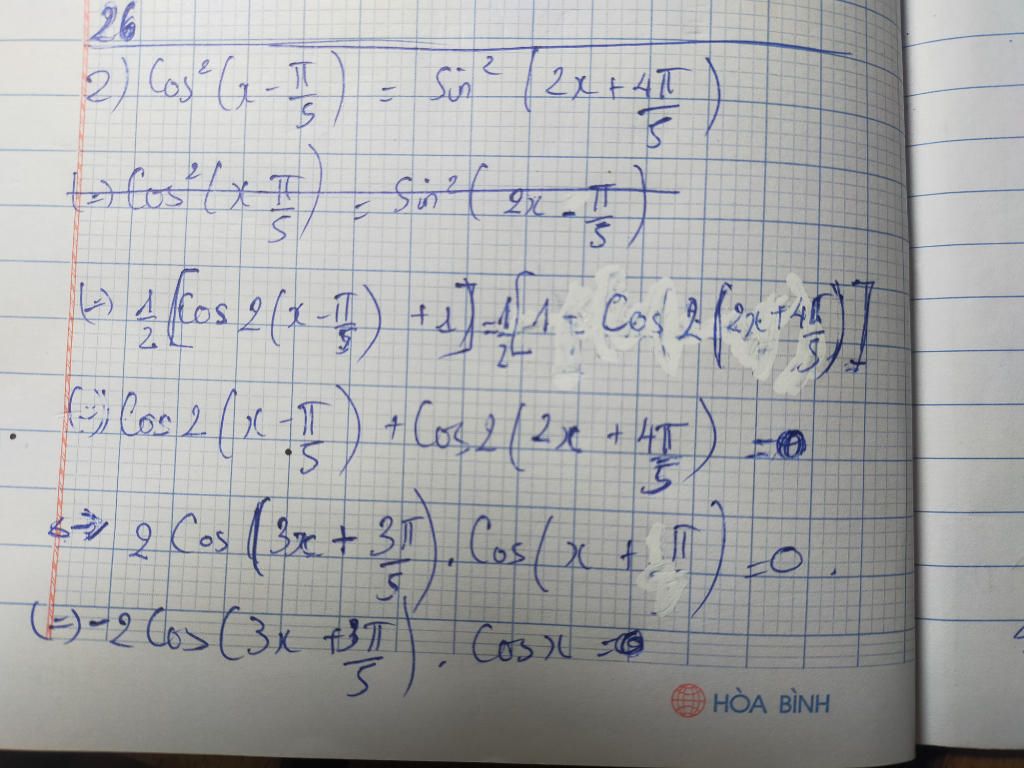 26
2) Cos² (x - π/5) = Sin² (2x + 4π/5)
(=) Cos² (x - π/5) = Sin² (2x - π/5)
(=) 1/2 [Cos 2 (x - π/5) + 1] = 1/2 [1 - Cos 2 (2x + 4π/5)]
(=) Cos 2 (x - π/5) + Cos 2 (2x + 4π/5) = 0
(=) 2 Cos (3x + 3π/5) . Cos (x + π) = 0 .
(=) -2 Cos (3x + 3π/5) . Cos x = 0
HÒA BÌNH